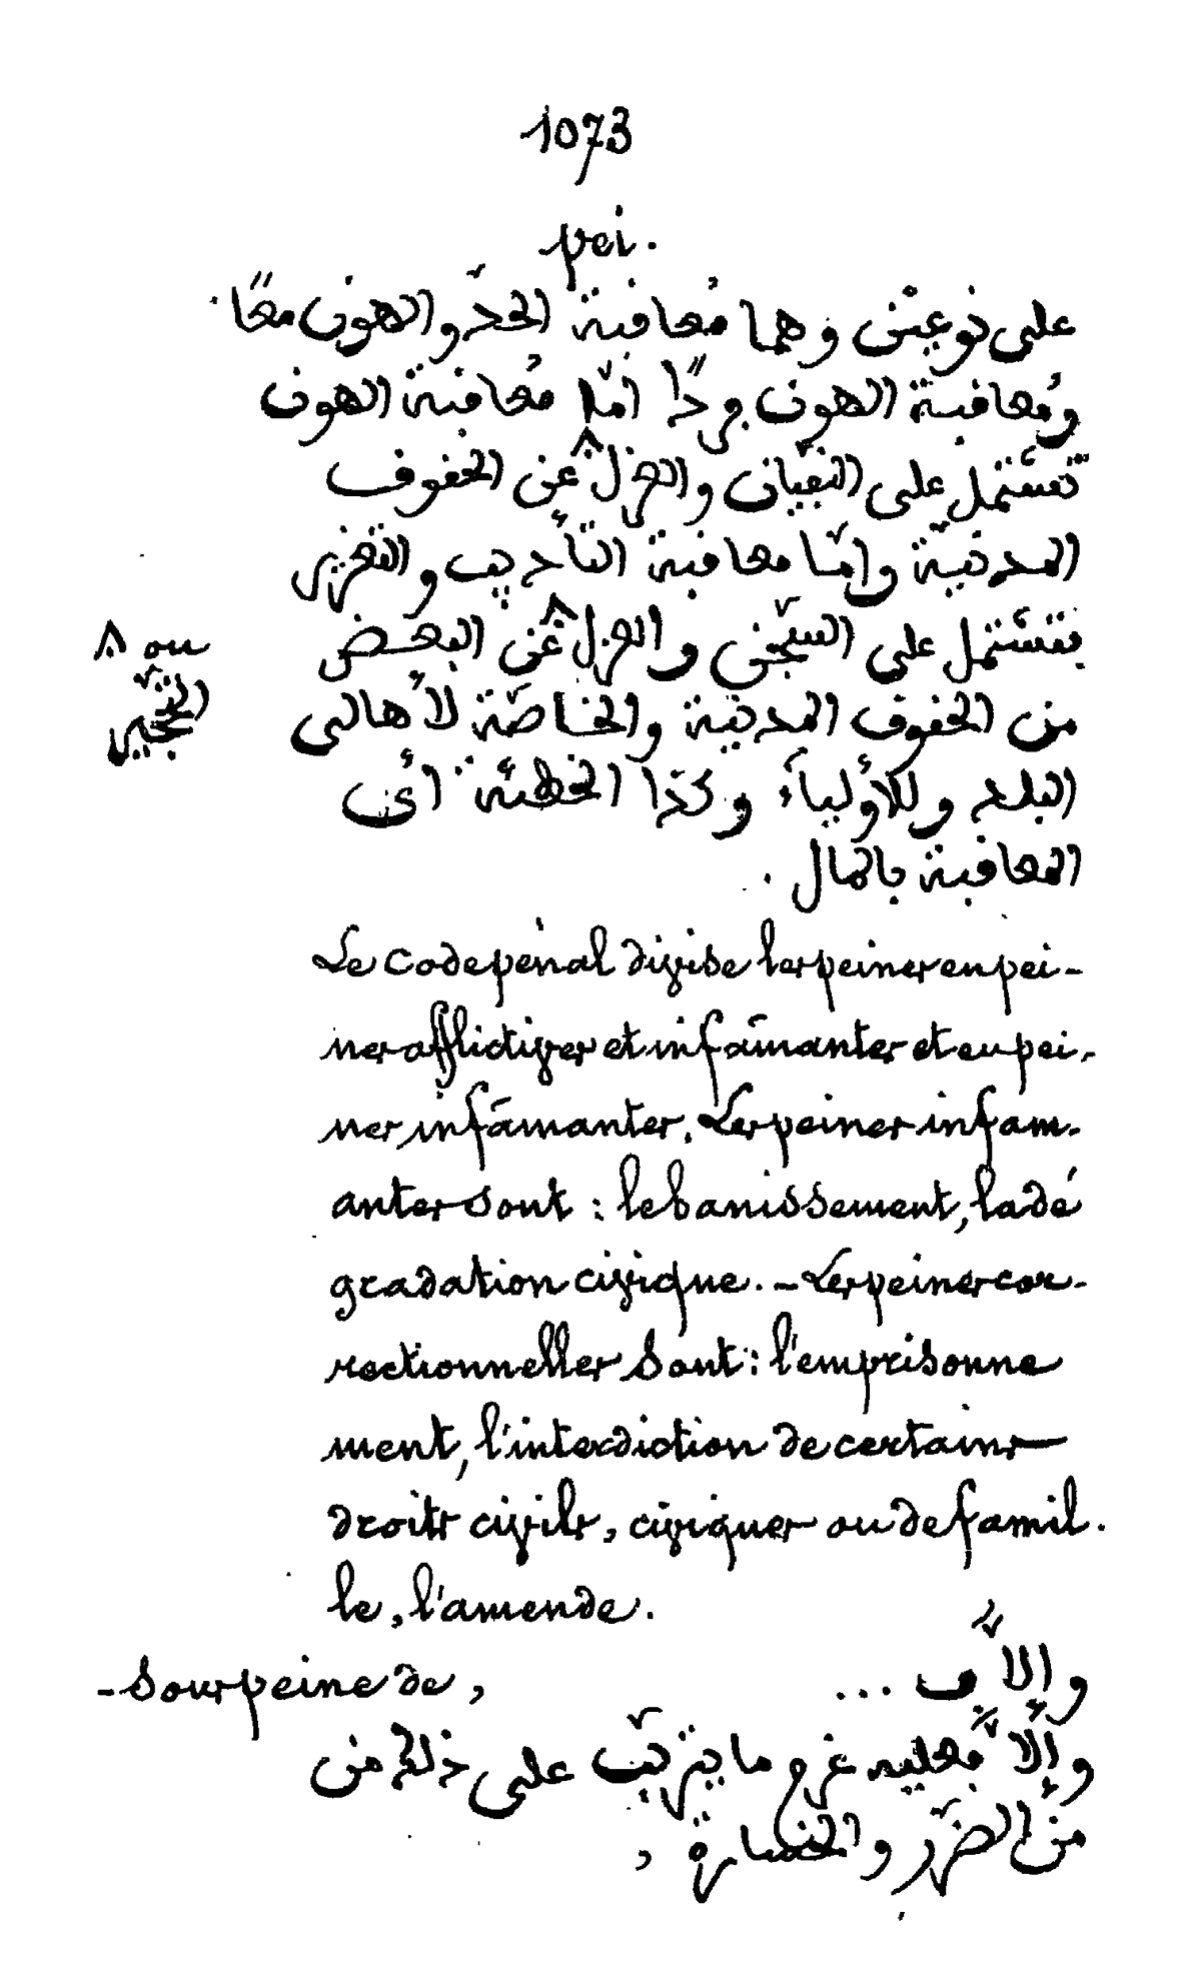 1073
pei.
على نوعين وهما مُعافبة الحدّ والهون معًا
ومُعافبة الهون بردًا امّا مُعافبة الهون
تشتمل على النبيان والعزل عن الحفوف
المدنيّة وامّا معافبة التأديب والتعزير
بتشتمل على السّجن والعزل عن البعض
۸ ou
التّجير
من الحفوف المدنية والخاصّة لأهالى
البلد وللأولياء وكذا الخطيئة أى
المعافبة بالمال .
Le Code pénal divise les peines en pei-
nes afflictives et infâmantes et en pei-
nes infâmantes. Les peines infam-
antes sont : le banissement, la dé
gradation civique. - Les peines cor-
rectionnelles sont : l'emprisonne
ment, l'interdiction de certains
droits civils, civiques ou de famil-
le, l'amende.
- sous peine de, وإلاّ ب ...
وإلاّ بعليه غرم ما يترتّب على ذلك من
من الضّرر والخسارة ,